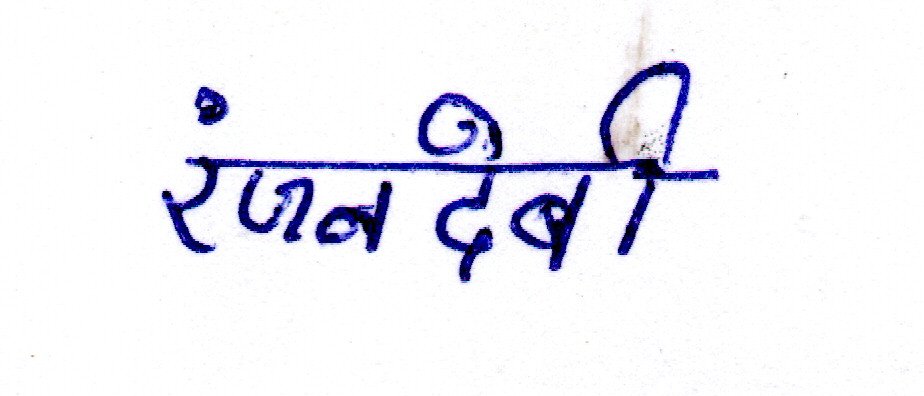 रंजन देबी